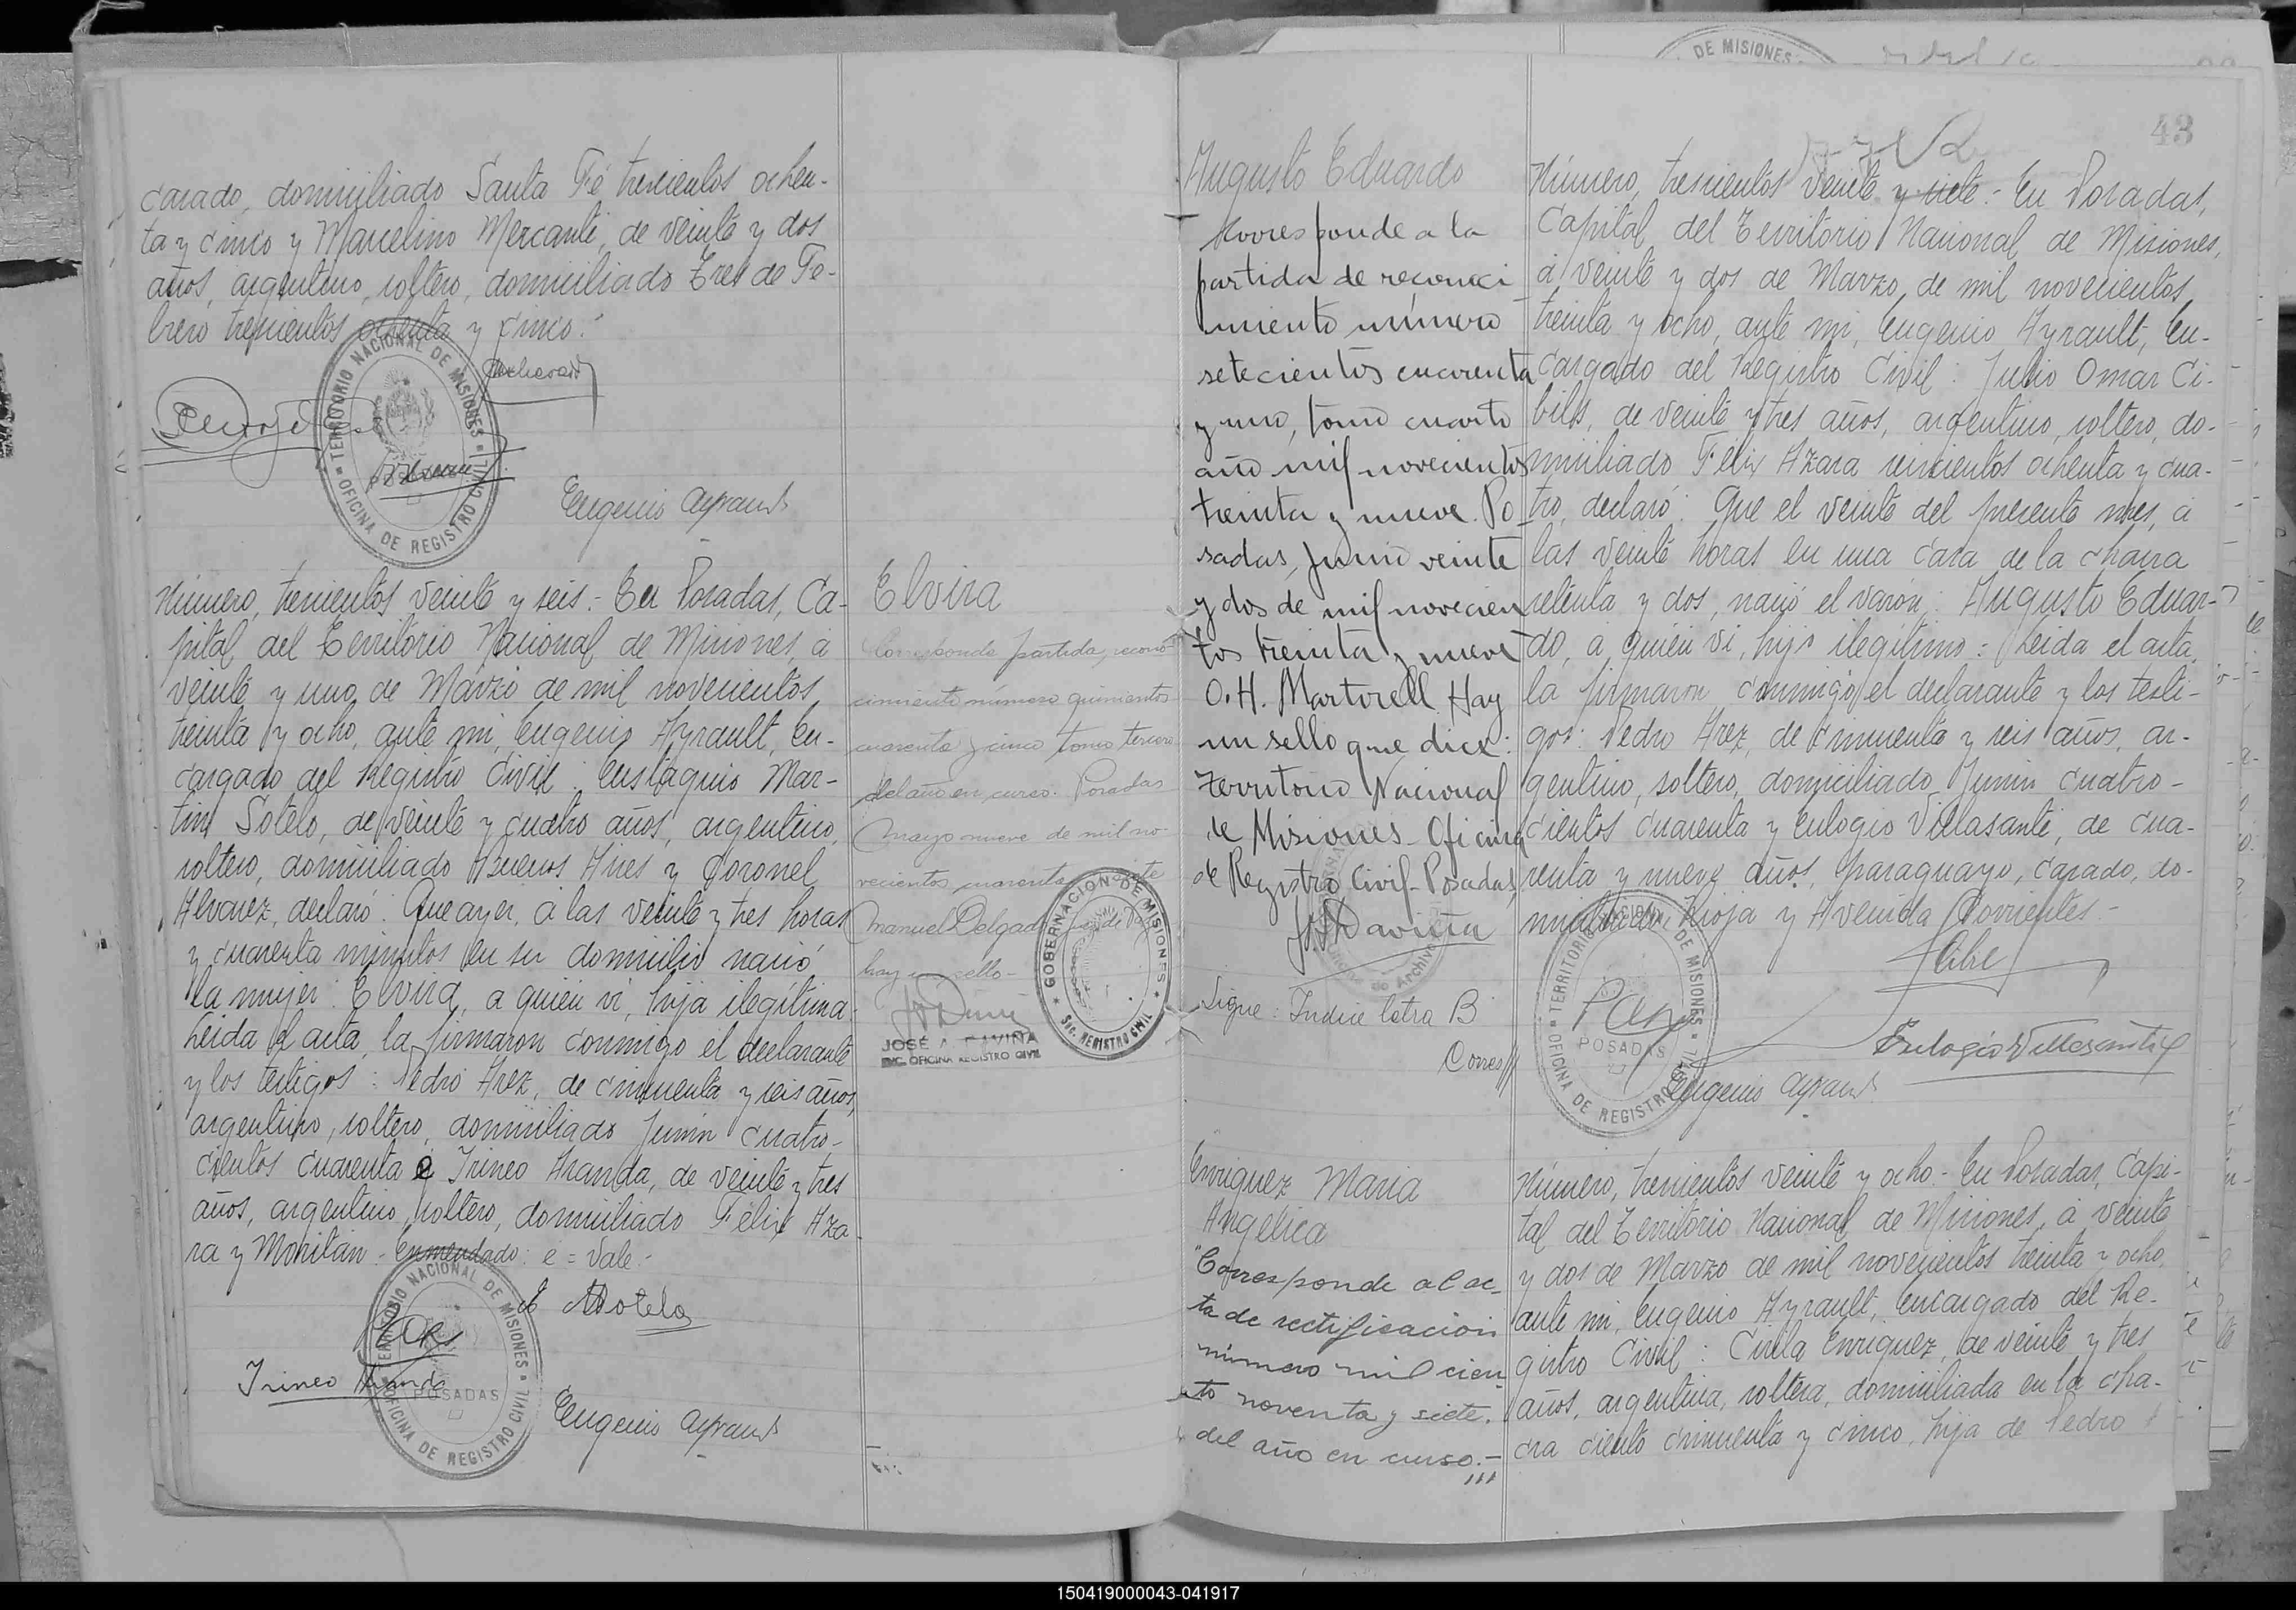 casado, domiciliado Santa Fé trescientos ochen-
ta y cinco y Marcelino Mercanti, de veinte y dos
años, argentino, soltero, domiciliado Tres de Fe-
brero trescientos ochenta y cinco.-
TERRITORIO NACIONAL DE MISIONES
OFICINA DE REGISTRO CIVIL
Eugenio Ayrault
Número, trescientos veinte y seis.- En Posadas, Ca-
pital del Territorio Nacional de Misiones, á
veinte y uno de Marzo de mil novecientos
treinta y ocho, ante mi, Eugenio Ayrault, En-
cargado del Registro Civil: Eustaquio Mar-
tin Sotelo, de veinte y cuatro años, argentino,
soltero, domiciliado Buenos Aires y Coronel
Alvarez, declaró: Que ayer, á las veinte y tres horas
y cuarenta minutos en su domicilio nació
la mujer: Elvira, a quien vi, hija ilegítima.
Leida el acta, la firmaron conmigo el declarante
y los testigos: Pedro Arez, de cincuenta y seis años,
argentino, soltero, domiciliado Junin cuatro-
cientos cuarenta é Irineo Aranda, de veinte y tres
años, argentino, soltero, domiciliado Félix Aza-
ra y Moritán.- enmendado: e = Vale.-
E M Sotelo
Irineo Aranda
TERRITORIO NACIONAL DE MISIONES
POSADAS
OFICINA DE REGISTRO CIVIL
Eugenio Ayrault
Elvira
Corresponde partida, recono-
cimiento número quinientos
cuarenta y cinco tomo tercero
del año en curso. Posadas
Mayo nueve de mil no-
vecientos cuarenta siete
Manuel Delgado
hay un sello-
JOSÉ A. DAVIÑA
ENC. OFICINA REGISTRO CIVIL
GOBERNACION DE MISIONES
SEC. REGISTRO CIVIL
Augusto Eduardo
Corresponde a la
partida de reconoci
miento número
setecientos cuarenta
y uno, tomo cuarto
año mil novecientos
treinta y nueve. Po
sadas, Junio veinte
y dos de mil novecien
tos treinta y nueve
O.H. Martorell. Hay
un sello que dice:
Territorio Nacional
de Misiones- Oficina
de Registro Civil- Posadas,
Daviña
Sigue: Indice letra B
Corres//
Enriquez Maria
Angélica
"Corresponde al ac-
ta de rectificacion
número mil cien
to noventa y siete.
del año en curso.-
DE MISIONES
43
Número, trescientos veinte y siete.- En Posadas,
Capital del Territorio Nacional de Misiones,
á veinte y dos de Marzo, de mil novecientos
treinta y ocho, ante mi, Eugenio Ayrault, En-
cargado del Registro Civil: Julio Omar Ci-
bils, de veinte y tres años, argentino, soltero, do-
miciliado Félix Azara seiscientos ochenta y cua-
tro, declaró: Que el veinte del presente mes, á
las veinte horas en una casa de la chacra
setenta y dos, nació el varón: Augusto Eduar-
do, á quien vi, hijo ilegítimo: Leida el acta,
la firmaron conmigo el declarante y los testi-
gos: Pedro Arez, de cincuenta y seis años, ar-
gentino, soltero, domiciliado Junin cuatro-
cientos cuarenta y Eulogio Villasanti, de cua-
renta y nueve años, paraguayo, casado, do-
miciliado Rioja y Avenida Corrientes.-
TERRITORIO NACIONAL DE MISIONES
POSADAS
OFICINA DE REGISTRO CIVIL
Eulogio Villasanti
Eugenio Ayrault
Número, trescientos veinte y ocho.- En Posadas, Capi-
tal del Territorio Nacional de Misiones, á veinte
y dos de Marzo de mil novecientos treinta y ocho,
ante mi, Eugenio Ayrault, Encargado del Re-
gistro Civil: Cirila Enriquez, de veinte y tres
años, argentina, soltera, domiciliada en la cha-
cra ciento cincuenta y cinco, hija de Pedro
150419000043-041917